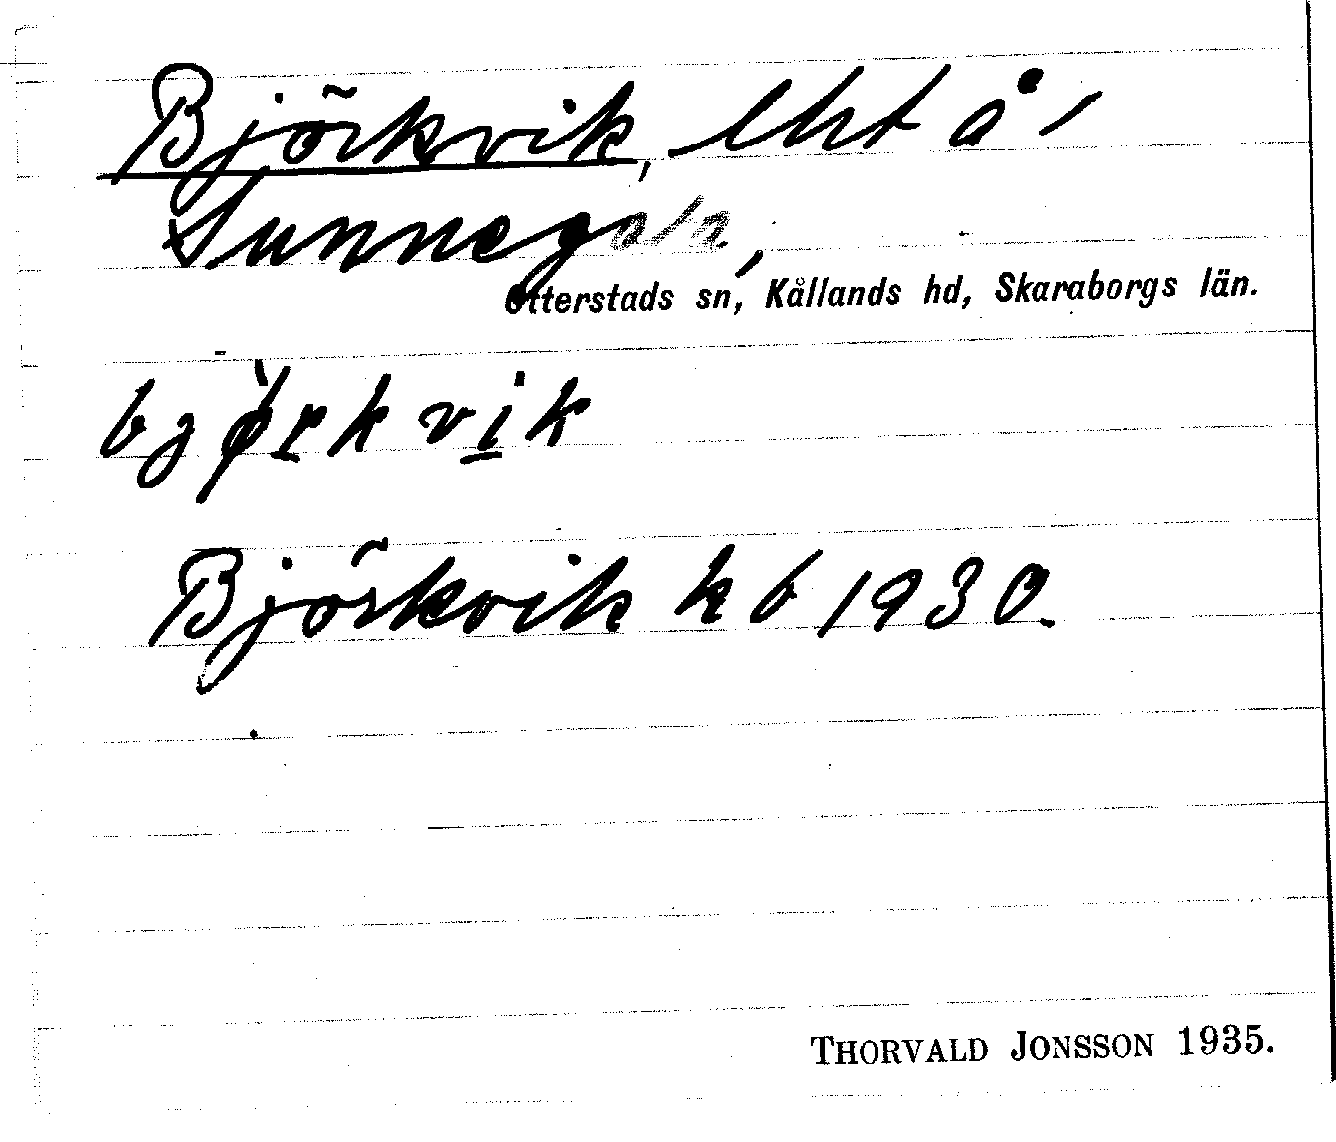 Björkvik, lht å 1
Sunnegàln,
Otterstads sn, Kållands hd, Skaraborgs län.
bjø̀rkvik
Björkvik kb 1930.
THORVALD JONSSON 1935.